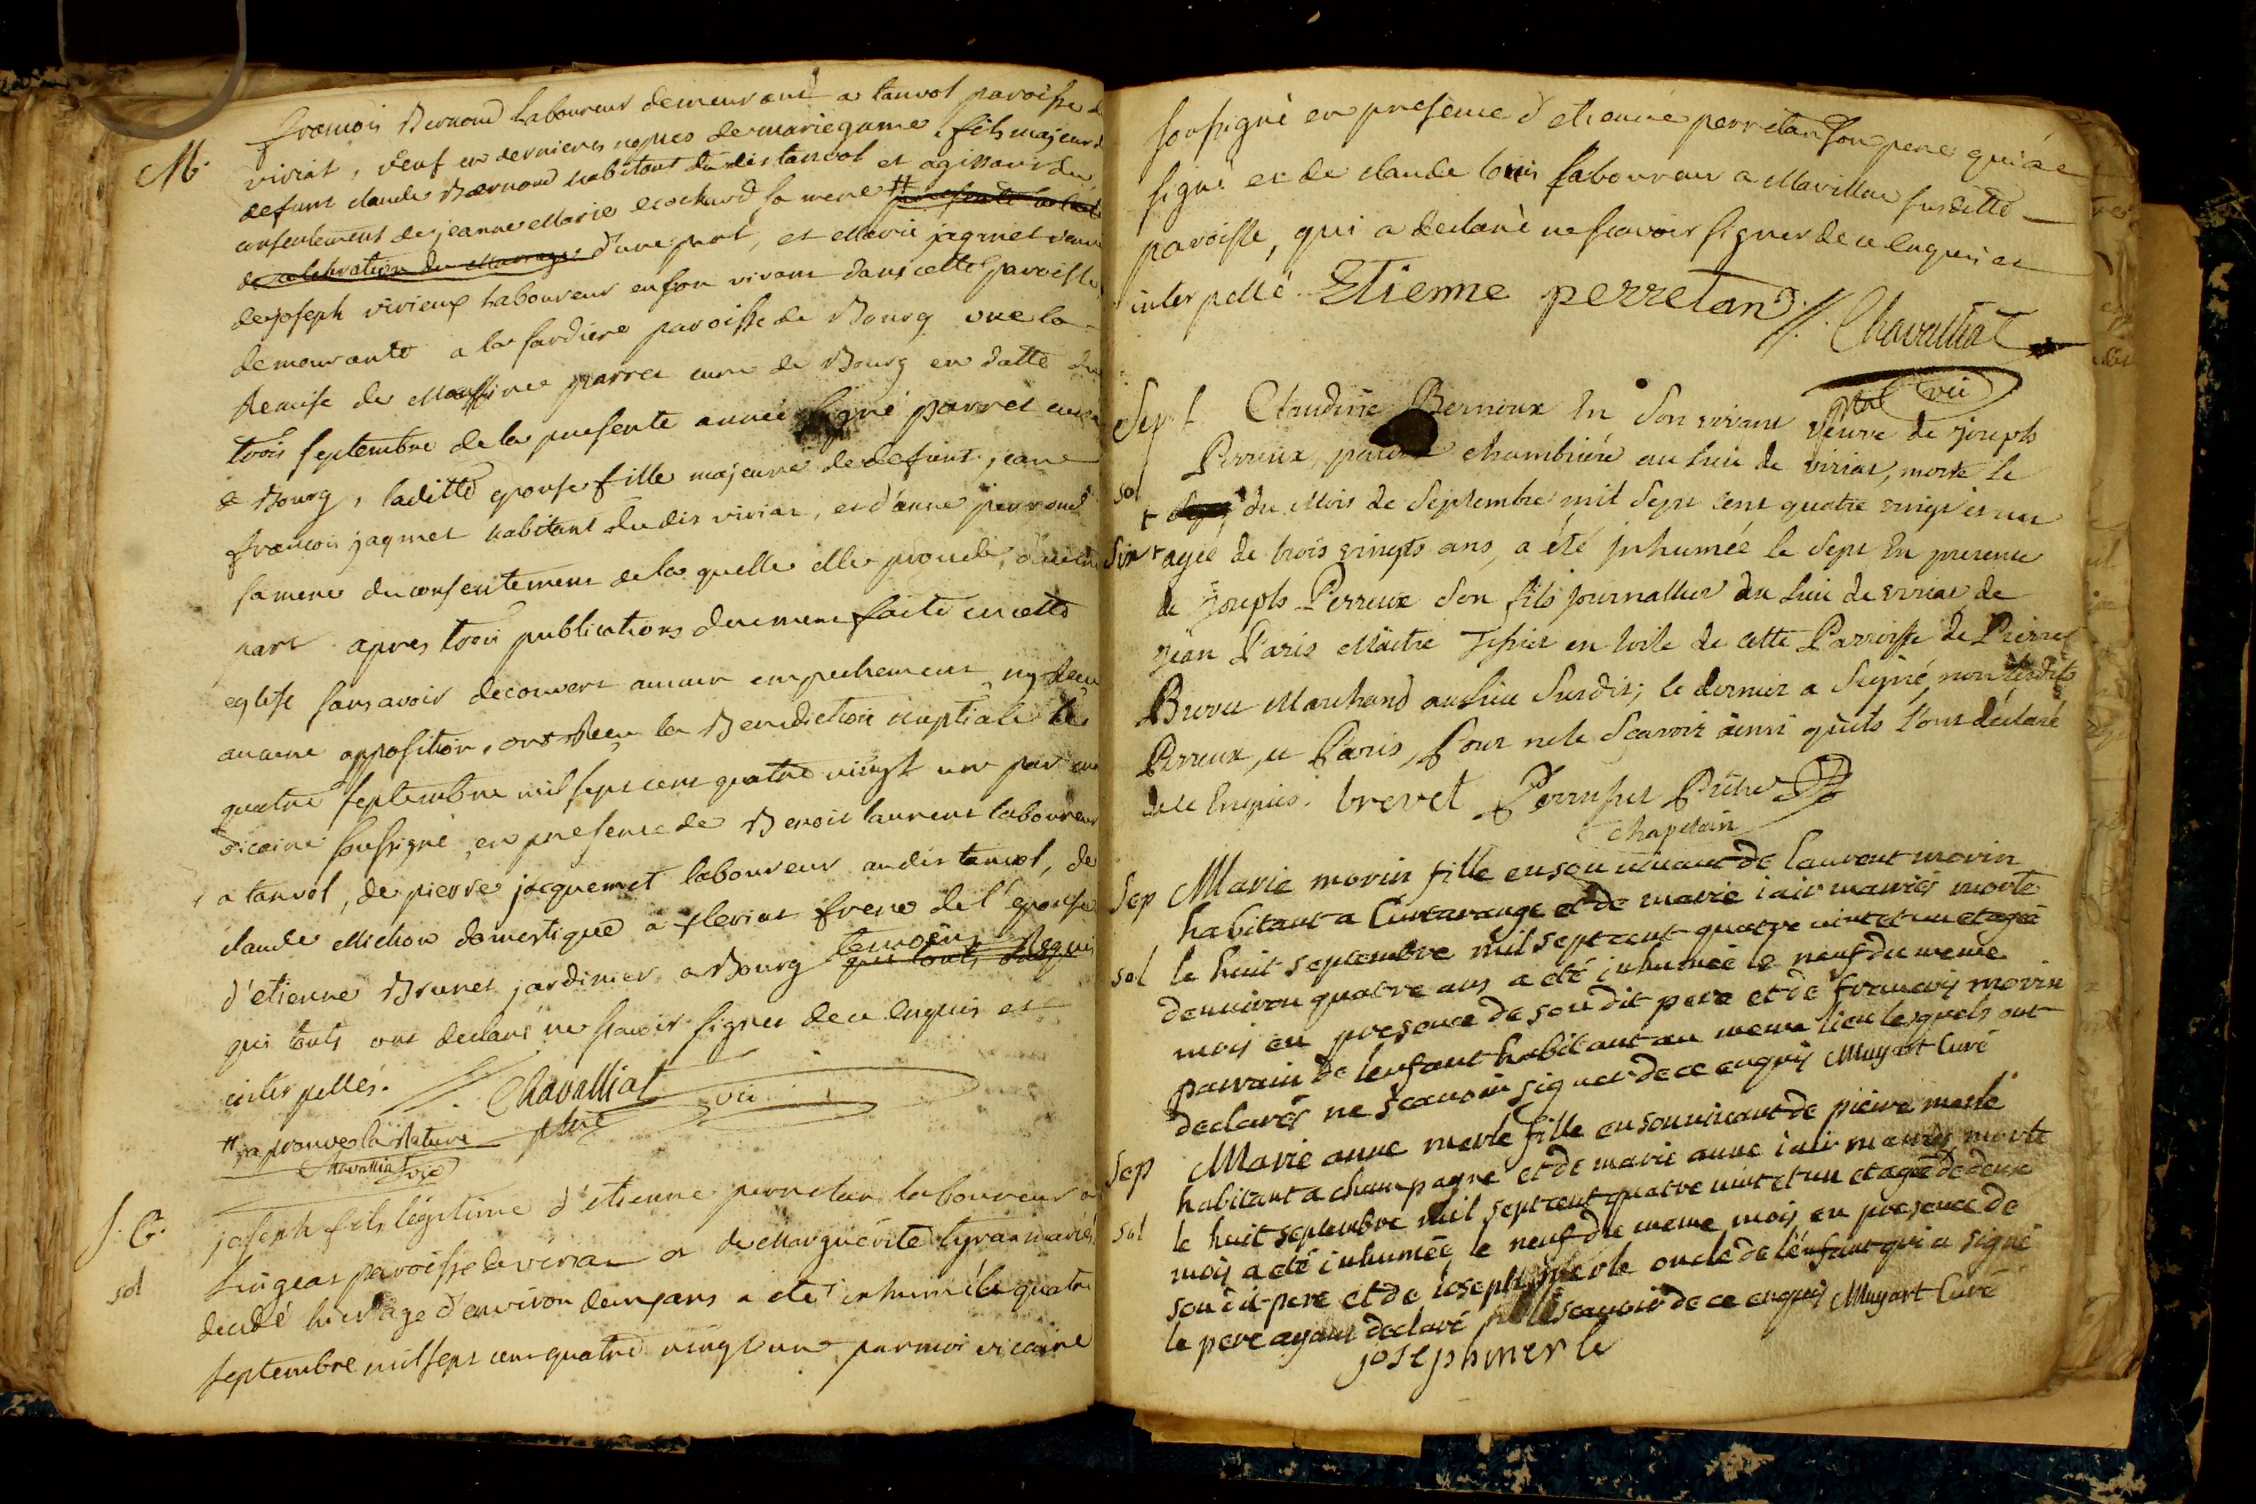 M. francois Bernoud laboureur demeurant a tanvol paroisse de
viriat, veuf en dernieres nopces de marie game, fils majeur de
defunt claude Bernoud habitant dudit tanvol et agissant du
consentement de jeanne Marie ecochard sa mere #
de celebration du Mariage d'une part, et Marie jaqmet veuve
de joseph virieux laboureur en son vivant dans cette paroisse,
demeurante a la fardiere paroisse de Bourg vue la
Remise de Messire parret cure de Bourg en datte du
trois septembre de la presente année signé parret cure
de Bourg, laditte epouse fille majeure de defunt jean
francois jaqmet habitant dudit viriat, et d'anne
sa mere du consentement de la quelle elle procede, d'autre
part apres trois publications duement faite en cette
eglise sans avoir decouvert aucun empechement ny
aucune opposition, ont Recu la Benediction nuptiale le
quatre septembre mil sept cent quatre vingt un par
vicaire soussigné, en presence de Benoit laurent laboureur
a tanvol, de pierre jacquemet laboureur audit tanvol, de
claude Michon domestique a fleriat frere de l'epouse
d'etienne Brunet jardinier a Bourg temoins qui tous Requis
qui touts ont declaré ne scavoir signer de ce enquis et
interpellés. Chavalliat vic
# japprouve la Rature ptre
Chavalliat vic
S. G. joseph fils légitime d'etienne perretan laboureur a
sol lingeat paroisse de viriat et de Marguerite mariés
decedé hier agé d'environ deux ans a été inhumé le quatre
septembre mil sept cent quatre vingt un par moi vicaire
soussigné en presence d'etienne perretan son pere qui a
signé et de claude louis laboureur a Marillat susditte
paroisse, qui a declaré ne scavoir signer de ce enquis et
interpellé. Etienne perretan Chavalliat
vic
Sept Claudine Bernoux En Son vivant veuve de joseph
Perreux, chambriére au lieu de viriat, morte le
sol + du Mois de Septembre mil Sept cent quatre vingt et un
Six + agée de trois vingts ans, a été inhumée le Sept En presence
de Joseph Perreux Son fils journallier du lieu de viriat, de
Jean Paris Maitre Tissier en toile de cette Parroisse de Pierre
Brevet Marchand au lieu Susdit; le dernier a Signé, non lesdits
Perreux, et Paris, pour ne le Scavoir ainsi qu'ils l'ont déclaré
de ce Enquis. brevet Perruset Prêtre
chapelain
Sep Marie morin fille en son vivant de laurent morin
habitant a Curtarange et de marie iair mariés morte
sol le huit septembre mil sept cent quatre vint et un et agée
denviron quatre ans a été inhumée le neuf du meme
mois en presence de son dit pere et de francois morin
parrain de lenfant habitant au meme lieu lesquels ont
declarés ne scavoir signer de ce enquis Muyart Curé
Sep Marie anne merle fille en son vivant de pierre merle
habitant a champagne et de marie anne iair mariés morte
sol le huit septembre mil sept cent quatre vint et un et agée de deux
mois a été inhumée le neuf du meme mois en presence de
son dit pere et de ioseph merle oncle de lenfant qui a signé
le pere ayant declaré ne le scavoir de ce enquis Muyart Curé
joseph merle